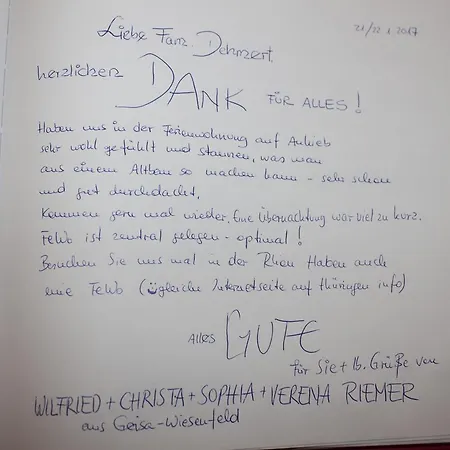 21/22.1.2017
Liebe Fam. Dehnert,
herzlichen DANK FÜR ALLES!
Haben uns in der Ferienwohnung auf Anhieb
sehr wohl gefühlt und staunen, was man
aus einem Altbau so machen kann - sehr schön
und gut durchdacht.
Kommen gern mal wieder. Eine Übernachtung war viel zu kurz.
FeWo ist zentral gelegen - optimal!
Besuchen Sie uns mal in der Rhön Haben auch
eine FeWo (gleiche Internetseite auf thüringen info)
ALLES GUTE
für Sie + lb. Grüße von
WILFRIED + CHRISTA + SOPHIA + VERENA RIEMER
aus Geisa-Wiesenfeld